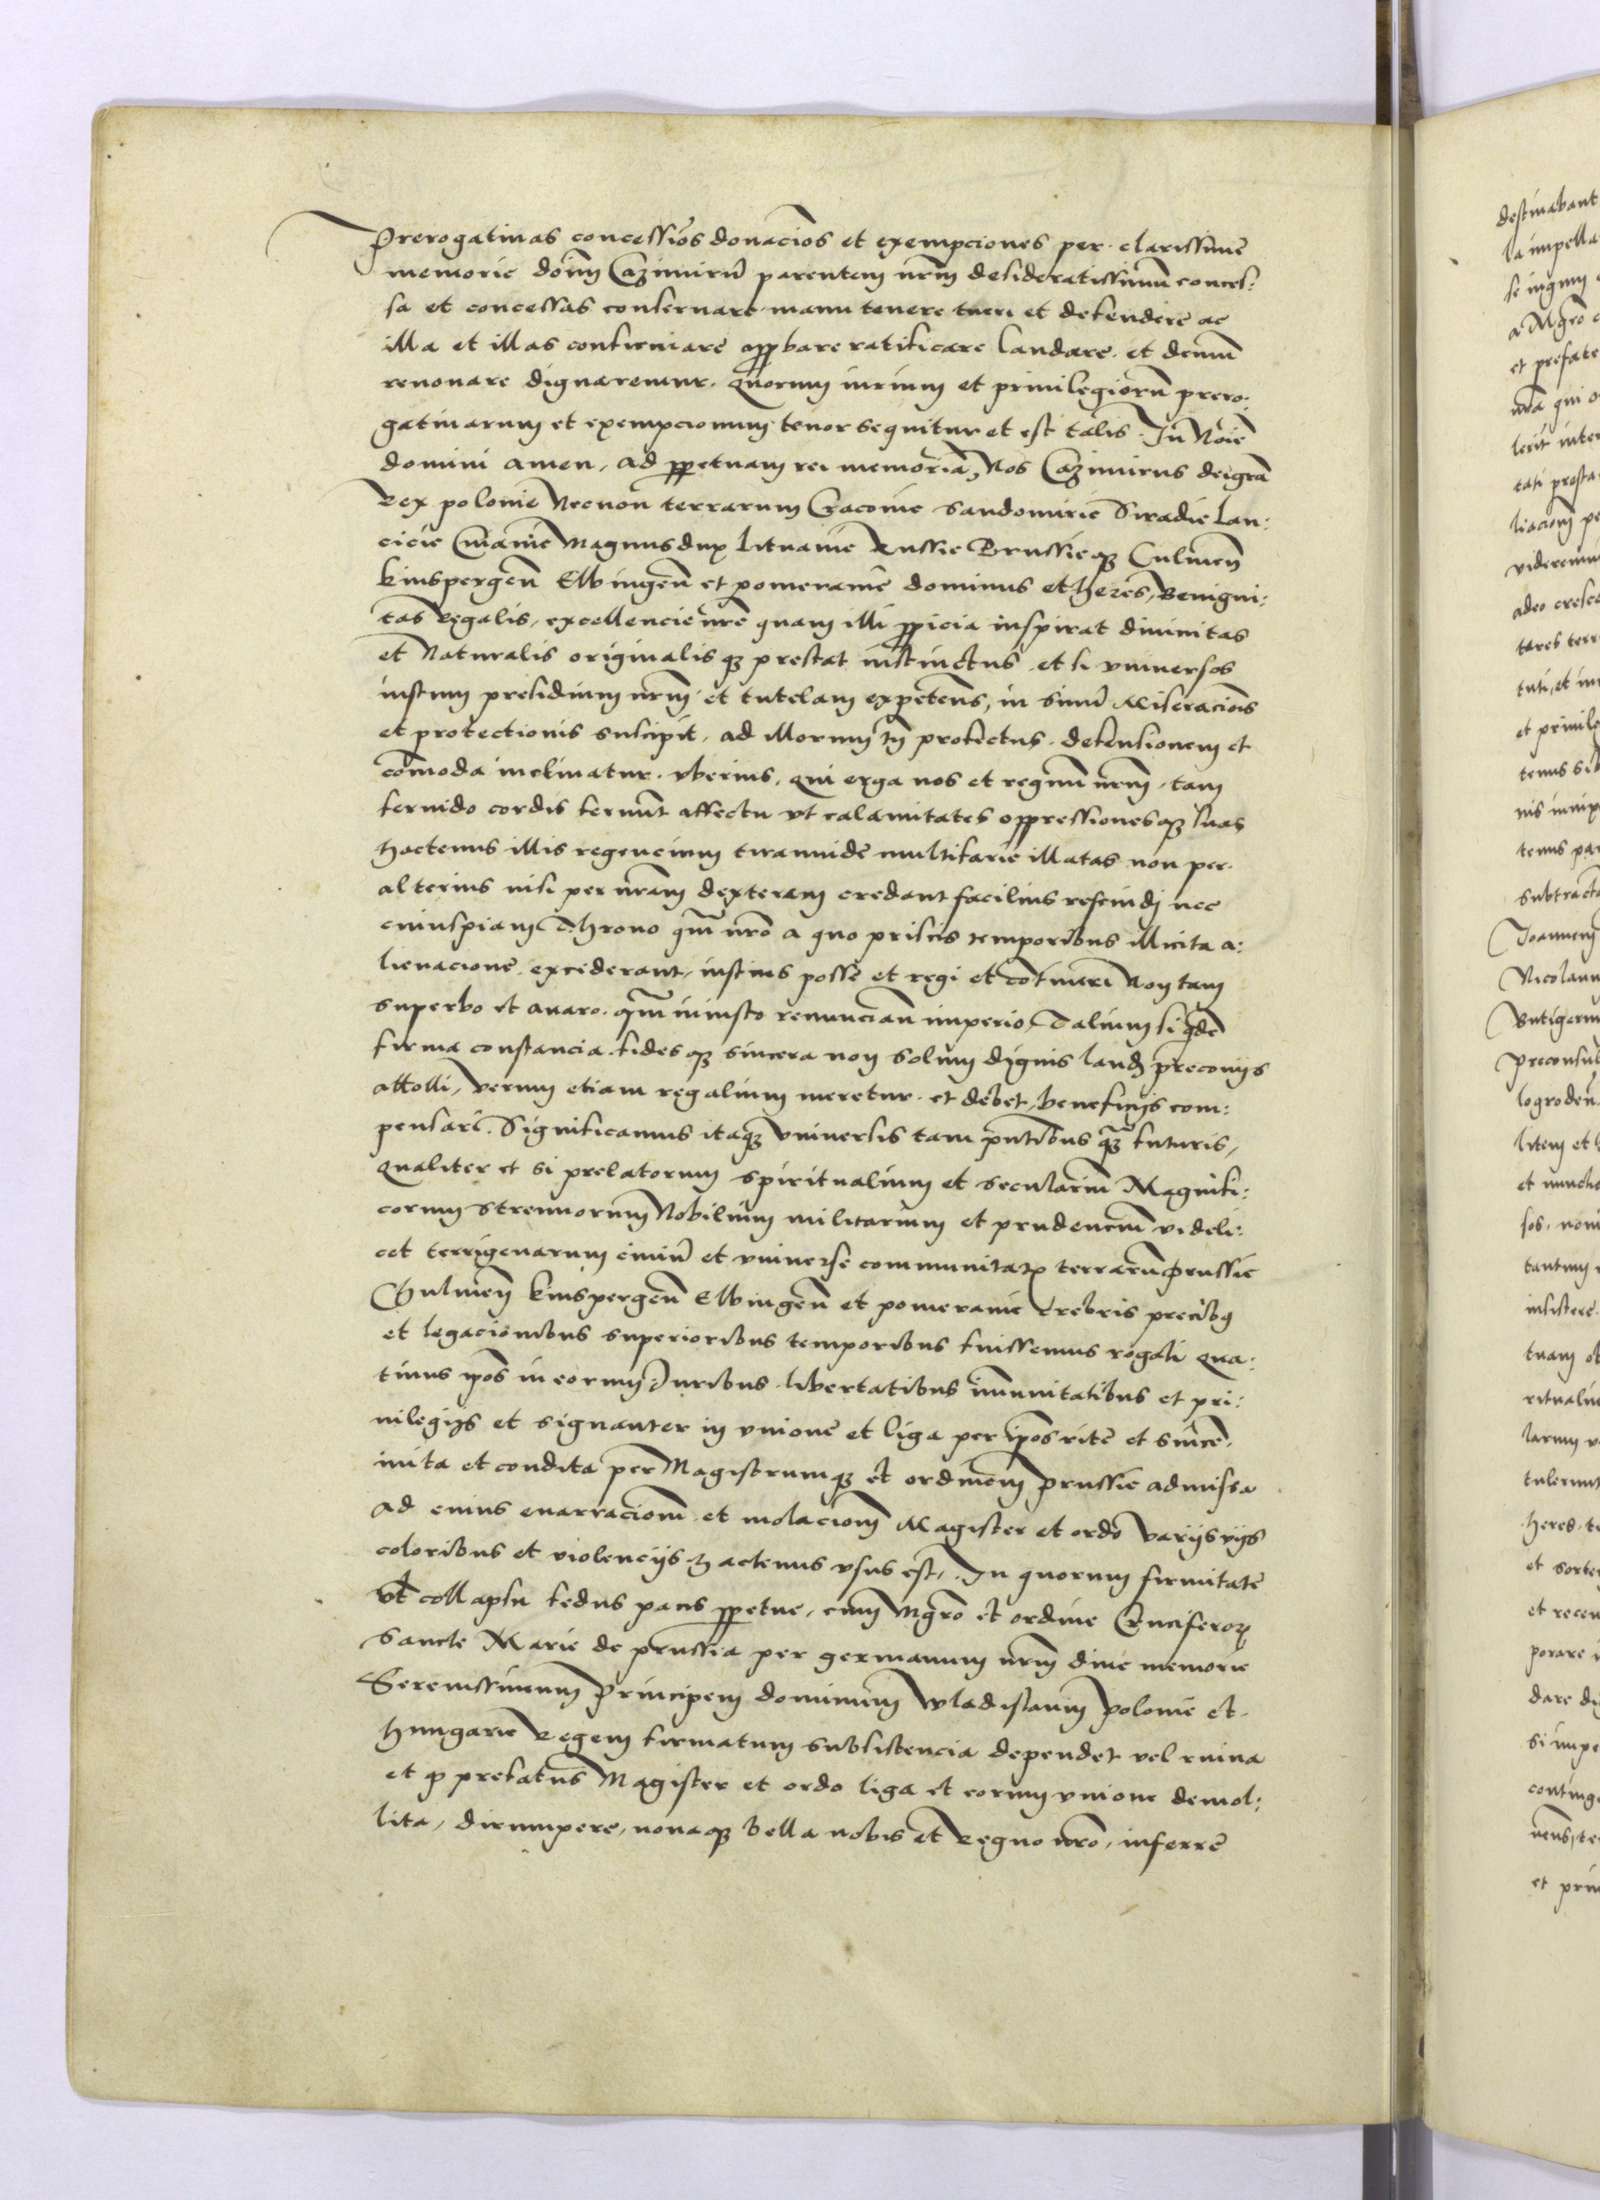 Prerogativas concessiōes donaciōes et exempciones per clarissime
memorie dōim Cazimirū parentem nrm̄ desideratissimum conces:
sa et concessas conservare manu tenere tueri et defendere ac
illa et illas confirmare approbare ratificare laudare et demum
renovare dignaremur. Quorum iurium et privilegiorū prero:
gativarum et exempcionum tenor sequitur et est talis. In Noīe
domini amen, ad ppetuam rei memoriā, Nos Cazimirus dei grā
Rex polonie Necnon terrarum Cracovie Sandomirie Siradie Lan:
cicie Cuiavie Magnus dux Lituanie Russie Prussieqz Culmeñ
kinspergeñ Elbingeñ et pomeranie dominus et heres, Benigni:
tas Regalis, excellencie nrē quam illi ppicia inspirat divinitas
et Naturalis originalisqz prestat instinctus et si universos
iustum presidium nrm̄ et tutelam expetens, in sinū Miseraciōis
et protectionis suscipit, ad illorum tn̄ profectus defensionem et
cōmoda inclinatur uberius, qui erga nos et regnum nrm̄, tam
fervido cordis feruntˉ affectu ut calamitates oppressionesqz suas
hactenus illis regencium tirannide multifarie illatas non per
alterius nisi per nrām dexteram credant facilius rescindj nec
cuiuspiam Throno qm̄ nrō a quo priscis temporibus illicita a:
lienacione exciderant, iustius posse et regi et cōfoveri Non tam
superbo et avaro qm̄ iniusto renuncian imperio, Talium siqdē
firma constancia fidesqz sincera non solum dignis laudꝫ preconijs
attolli, verum etiam regalium meretur et debet, beneficijs com:
pensari. Significamus itaqz universis tam pntibus qz futuris,
qualiter et si prelatorum spiritualium et secularium Magnifi:
corum Strenuorum Nobilium militarium et prudencium videli:
cet terrigenarum civiū et universe communitatꝫ terrarū Prussie
Chulmeñ kinspergeñ Elbingeñ et pomeranie crebris precibꝫ
et legacionibus superioribus temporibus fuissemus rogati qua:
tinus ipos in eorum Juribus libertatibus immunitatibus et pri:
vilegijs et signanter in unione et liga per ipos rite et sincē
inita et condita per Magistrumqz et ordinem prussie admissa
ad cuius enarraciom̄ et violaciom̄ Magister et ordo varijs vijs
coloribus et violencijs hactenus usus est, In quorum firmitate
vl̄ collapsu fedus pacis ppetue, cum Mgro et ordine Cruciferoꝝ
Sancte Marie de prussia per germanum nrm̄ dive memorie
Serenissimum Principem dominum Wladislaum Polonie et
hungarie Regem firmatum subsistencia dependet vel ruina
et qꝫ prefatus Magister et ordo liga et eorum unione demol:
lita, dirumpere, novaqz bella nobis et Regno nrō, inferre
destinabant
la impella
se ingnij
a Mgro
et prefate
nrā qui
tati prosta
viderem
adeo cresc
tares terr
tuti, et in
et privile
tenus sib
tenus pa
subtracta
Joannem
Nicolaum
Butigerum
preconsul
logrodeñ
litem et
et nuncio
tantum
insistere
tuam
ritualiu
larum
tulerunt
heres
et sorte
et recen
porare
dare di
si impe
conting
et priv